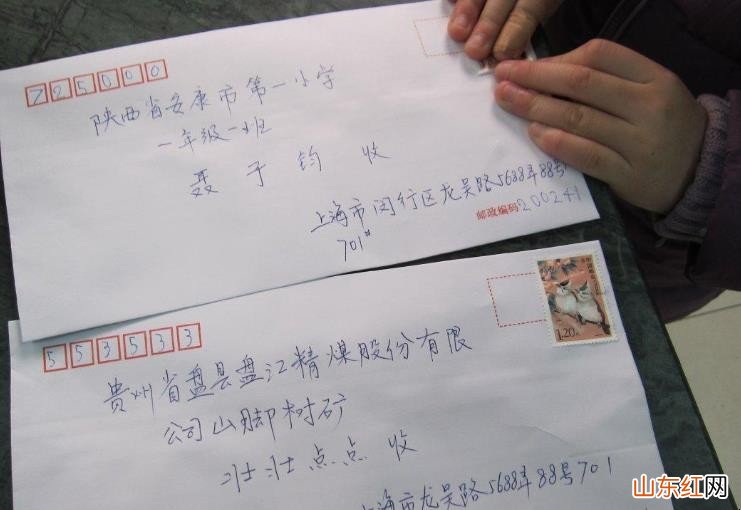 225000
陕西省安康市第一小学
一年级一班
聂于钧 收
上海市闵行区龙吴路5688弄88号
邮政编码200241
701#
553533
1.20元
贵州省盘县盘江精煤股份有限
公司山脚树矿
壮壮点点 收
上海市龙吴路5688弄88号701
山东红网